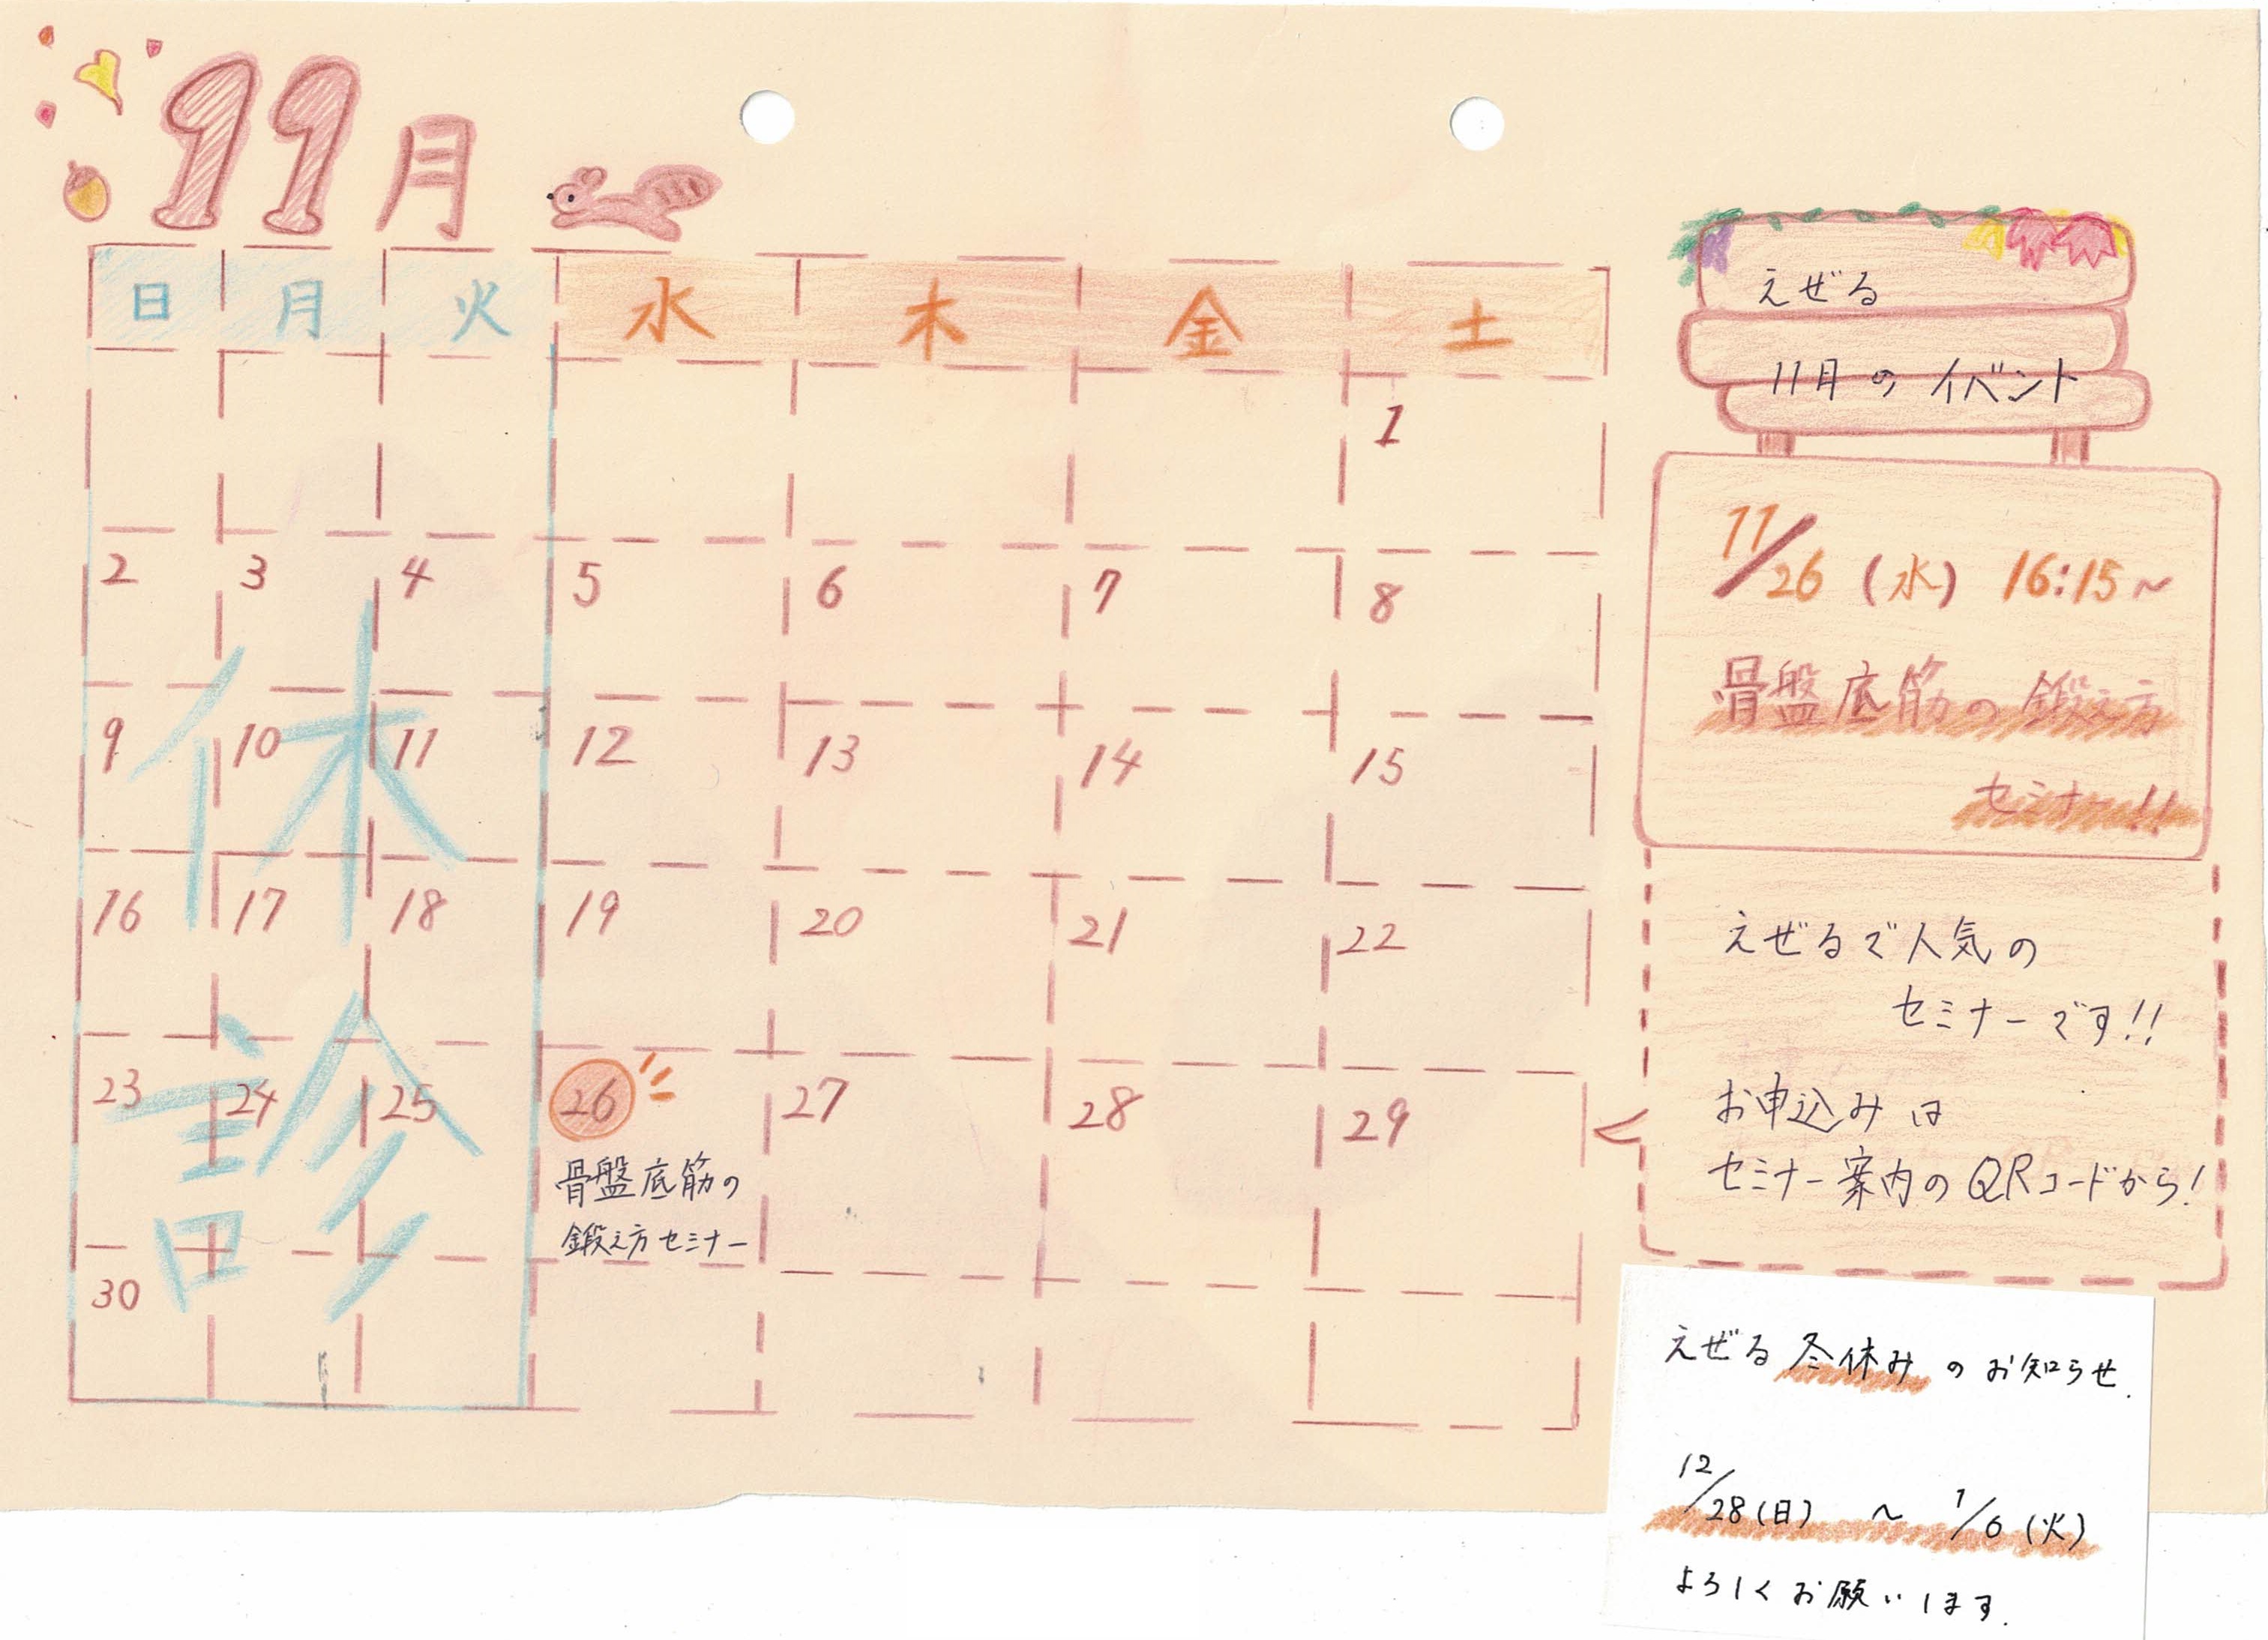 11月
日 月 火 水 木 金 土
1
2 3 4 5 6 7 8
9 10 11 12 13 14 15
16 17 18 19 20 21 22
23 24 25 26 27 28 29
骨盤底筋の
鍛え方セミナー
30
休
診
えぜる
11月のイベント
11/26 (水) 16:15~
骨盤底筋の鍛え方
セミナー!!
えぜるで人気の
セミナーです!!
お申込みは
セミナー案内のQRコードから!
えぜる 冬休み のお知らせ.
12/28(日) ~ 1/6(火)
よろしくお願いします.